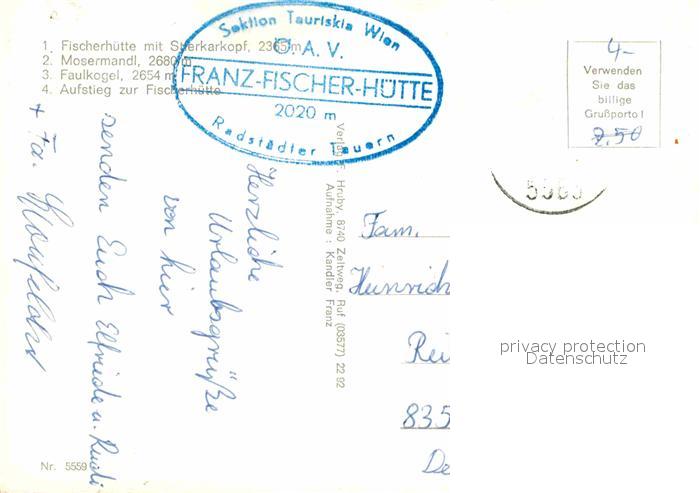 1. Fischerhütte mit Sterkarkopf, 2365 m
2. Mosermandl, 2680 m
3. Faulkogel, 2654 m
4. Aufstieg zur Fischerhütte
Sektion Tauriskia Wien
Ö.A.V.
FRANZ-FISCHER-HÜTTE
2020 m
Radstädter Tauern
4-
Verwenden
Sie das
billige
Grußporto!
7,50
Herzliche
Urlaubsgrüße
von hier
senden Euch Elfriede u. Rudi
+ Fa.
Verlag F. Hruby, 8740 Zeltweg, Ruf (03577) 22 92
Aufnahme: Kandler Franz
Fam.
Heinrich
Rei
835
De
privacy protection
Datenschutz
Nr. 5559